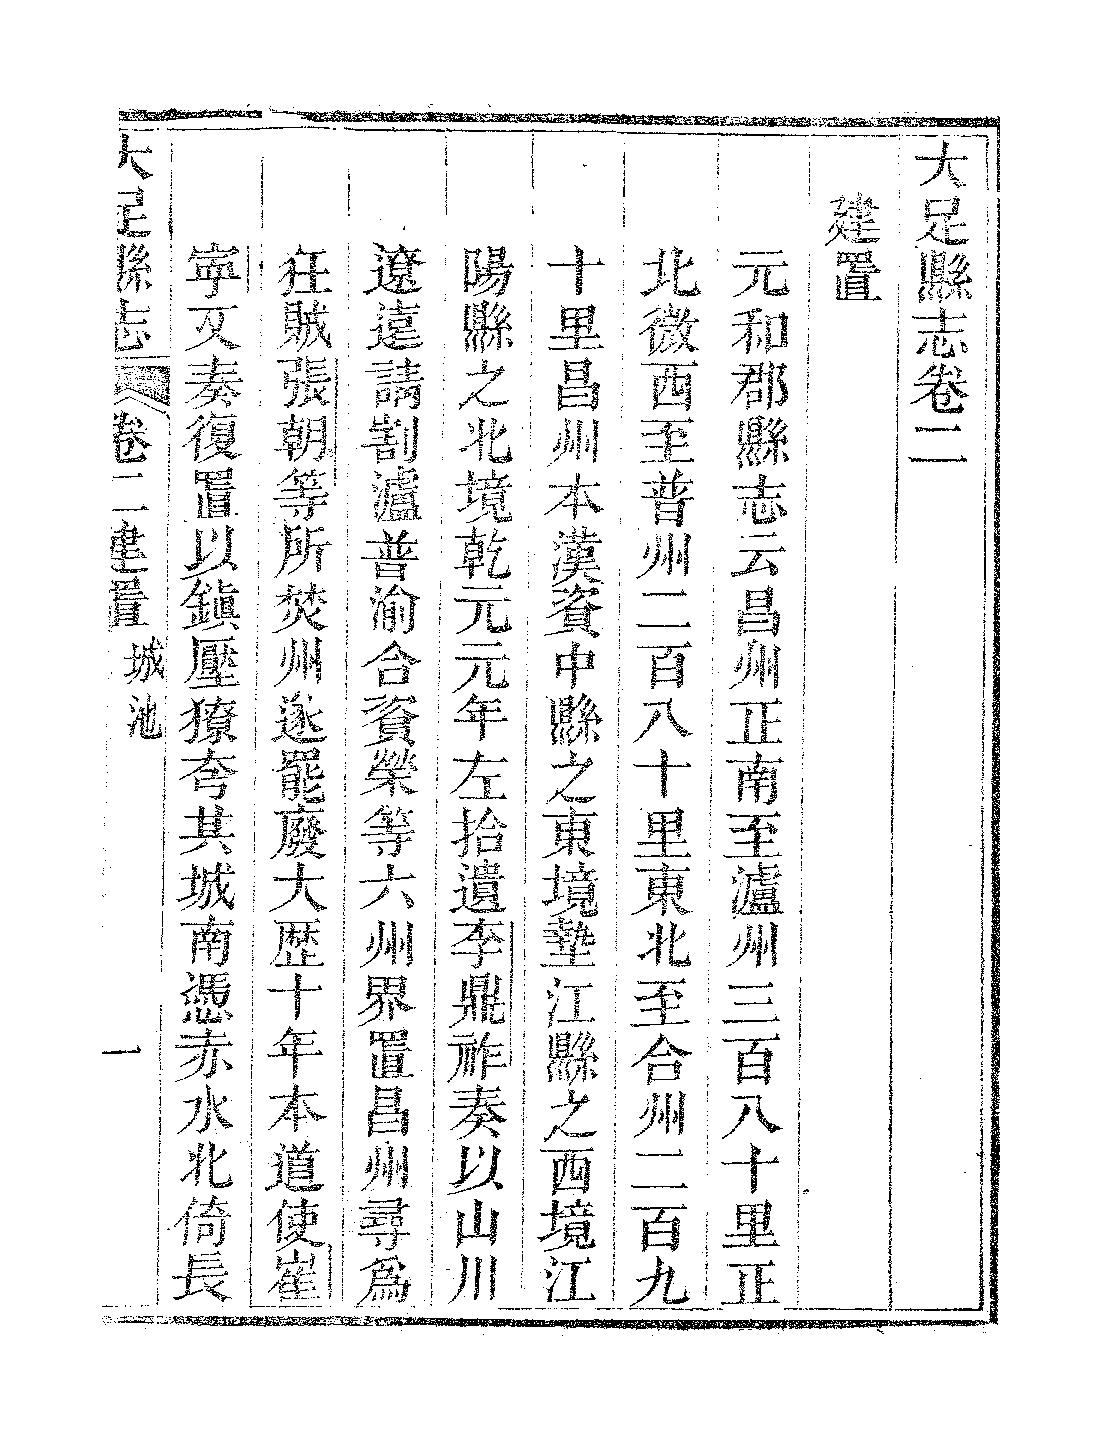 大足縣志卷二
建置
元和郡縣志云昌州正南至瀘州三百八十里正
北微西至普州二百八十里東北至合州二百九
十里昌州本漢資中縣之東境墊江縣之西境江
陽縣之北境乾元元年左拾遺李鼎祚奏以山川
遼遠請割瀘普渝合資榮等六州界置昌州尋為
狂賊張朝等所焚州遂罷廢大歷十年本道使崔
寧又奏復置以鎭壓獠夸其城南憑赤水北倚長
大足縣志 卷二建置 城池 一